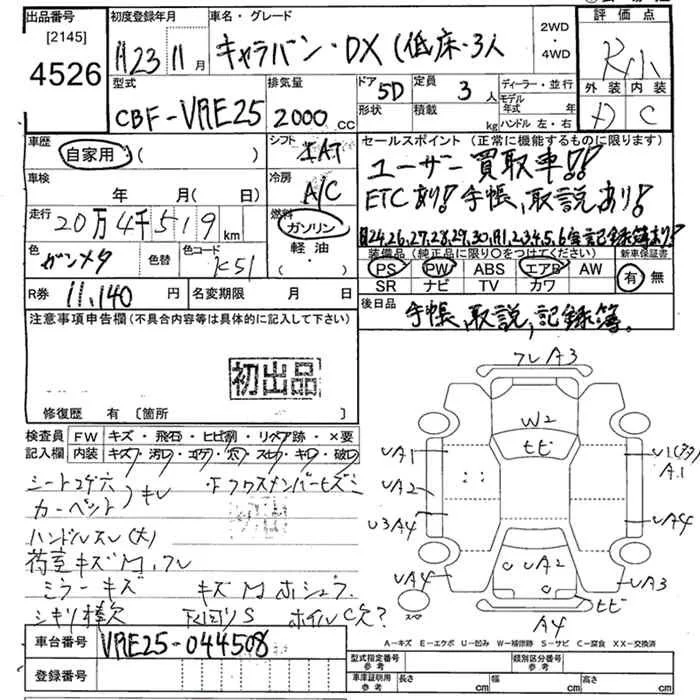 出品番号 初度登録年月 車名・グレード 2WD ・ 4WD 評価点
[2145]
4526 H23 11月 キャラバン・DX (低床・3人
型式 排気量 ドア 5D 定員 3人 ディーラー・並行 外装 内装
CBF-VRE25 2000cc 形状 積載 kg モデル年式 年 C
ハンドル 左・右
車歴 自家用 ( ) シフト セールスポイント (正常に機能するものに限ります)
ユーザー買取車!!
車検 年 月 ( 日) 冷房 A/C ETCあり!手帳、取説あり!
走行 20万4千519km 燃料 ガソリン
H24,26,27,28,29,30,R1,2,3,4,5,6 記録簿あり!
軽油
( ・ )
色 ガンメタ 色替 色コード K51
装備品 (純正品に限り○をつけてください) 新車保証書
PS PW ABS エアB AW 有・無
SR ナビ TV カワ
R券 11,140円 名変期限 月 日 後日品
手帳、取説、記録簿。
注意事項申告欄 (不具合内容等は具体的に記入して下さい)
初出品
修復歴 有 〔箇所
フレA3
W2
ヒビ
UA1
UA2
U3A4
UA4
A1
UA4
UA3
UA2
ヒビ
A4
スペ
検査員記入欄 FW キズ・飛石・ヒビ割・リペア跡・×要
内装 キズ・汚レ・コゲ・穴・スレ・キレ・破レ
シートコゲ穴
カーペット キレ
ハンドルスレ(大)
荷室キズM,フレ
ミラーキズ キズM
シキリ棒欠 下回りS
A-キズ E-エクボ U-凹み W-補修跡 S-サビ C-腐食 XX-交換済
車台番号 VRE25-044508
登録番号
型式指定番号 参考 類別区分番号 参考
車庫証明用 参考 長さ cm 幅 cm 高さ cm